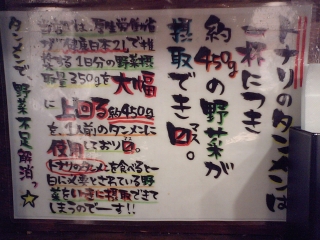 トナリのタンメンは
一杯につき
約450gの野菜が
摂取でき〼。
マス
当店では、厚生労働省が
「健康日本21」で推
奨する1日分の野菜摂
取量350gを大幅
に上回る約450g
を、1人前のタンメンに
使用しており〼。
トナリのタンメンを食べると一
日に必要とされている野
菜をいっきに摂取できて
しまうのでーす!!
タンメンで、野菜不足解消っ☆